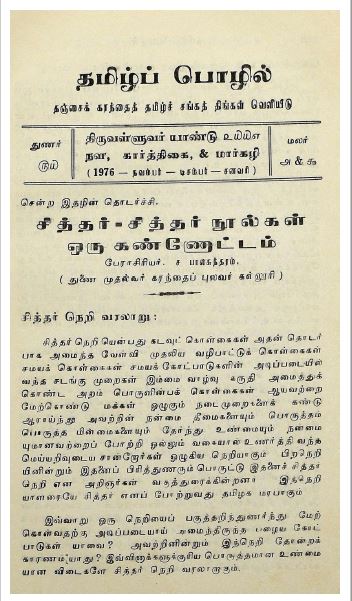 தமிழ்ப் பொழில்
தஞ்சைக் கரந்தைத் தமிழ்ச் சங்கத் திங்கள் வெளியீடு
துணர்
திருவள்ளுவர் யாண்டு
மலர்
நள, கார்த்திகை, & மார்கழி
அ & கூ
(1976 — நவம்பர் — டிசம்பர் — சனவரி)
சென்ற இதழின் தொடர்ச்சி.
சித்தர் - சித்தர் நூல்கள்
ஒரு கண்ணோட்டம்
பேராசிரியர். ச பாலசுந்தரம்.
( துணை முதல்வர் கரந்தைப் புலவர் கல்லூரி )
சித்தர் நெறி வரலாறு :
சித்தர் நெறியென்பது கடவுட் கொள்கைகள் அதன் தொடர்
பாக அமைந்த வேள்வி முதலிய வழிபாட்டுக் கொள்கைகள்
சமயக் கொள்கைகள் சமயக் கோட்பாடுகளின் அடிப்படையில்
வந்த சடங்கு முறைகள் இம்மை வாழ்வு கருதி அமைத்துக்
கொண்ட அறம் பொருளின்பக் கொள்கைகள் ஆயவற்றை
மேற்கொண்டு மக்கள் ஒழுகும் நடைமுறைகளைக் கண்டு
ஆராய்ந்து அவற்றின் நன்மை தீமைகளையும் பொருத்தம்
பொருத்த மின்மைகளையும் தேர்ந்து உண்மையும் நன்மை
யுமானவற்றைப் போற்றி ஒல்லும் வகையால் உணர்த்தி வந்த
மெய்யறிவுடைய சான்றோர்கள் ஒழுகிய நெறியாகும் பிறநெறி
யினின்றும் இதனைப் பிரித்துணரும் பொருட்டு இதனைச் சித்தர்
நெறி என அறிஞர்கள் வகுத்துரைக்கின்றனர் இந்நெறி
யாளரையே சித்தர் எனப் போற்றுவது தமிழக மரபாகும்
இவ்வாறு ஒரு நெறியைப் பகுத்தறிந்துணர்ந்து மேற்
கொள்வதற்கு அடிப்படையாய் அமைந்திருந்த பழைய கோட்
பாடுகள் யாவை? அவற்றினின்றும் இந்நெறி தோறைக்
காரணம் யாது? இவ்வினாக்களுக்குரிய பொருத்தமான உண்மை
யான விடைகளே சித்தர் நெறி வரலாறாகும்.